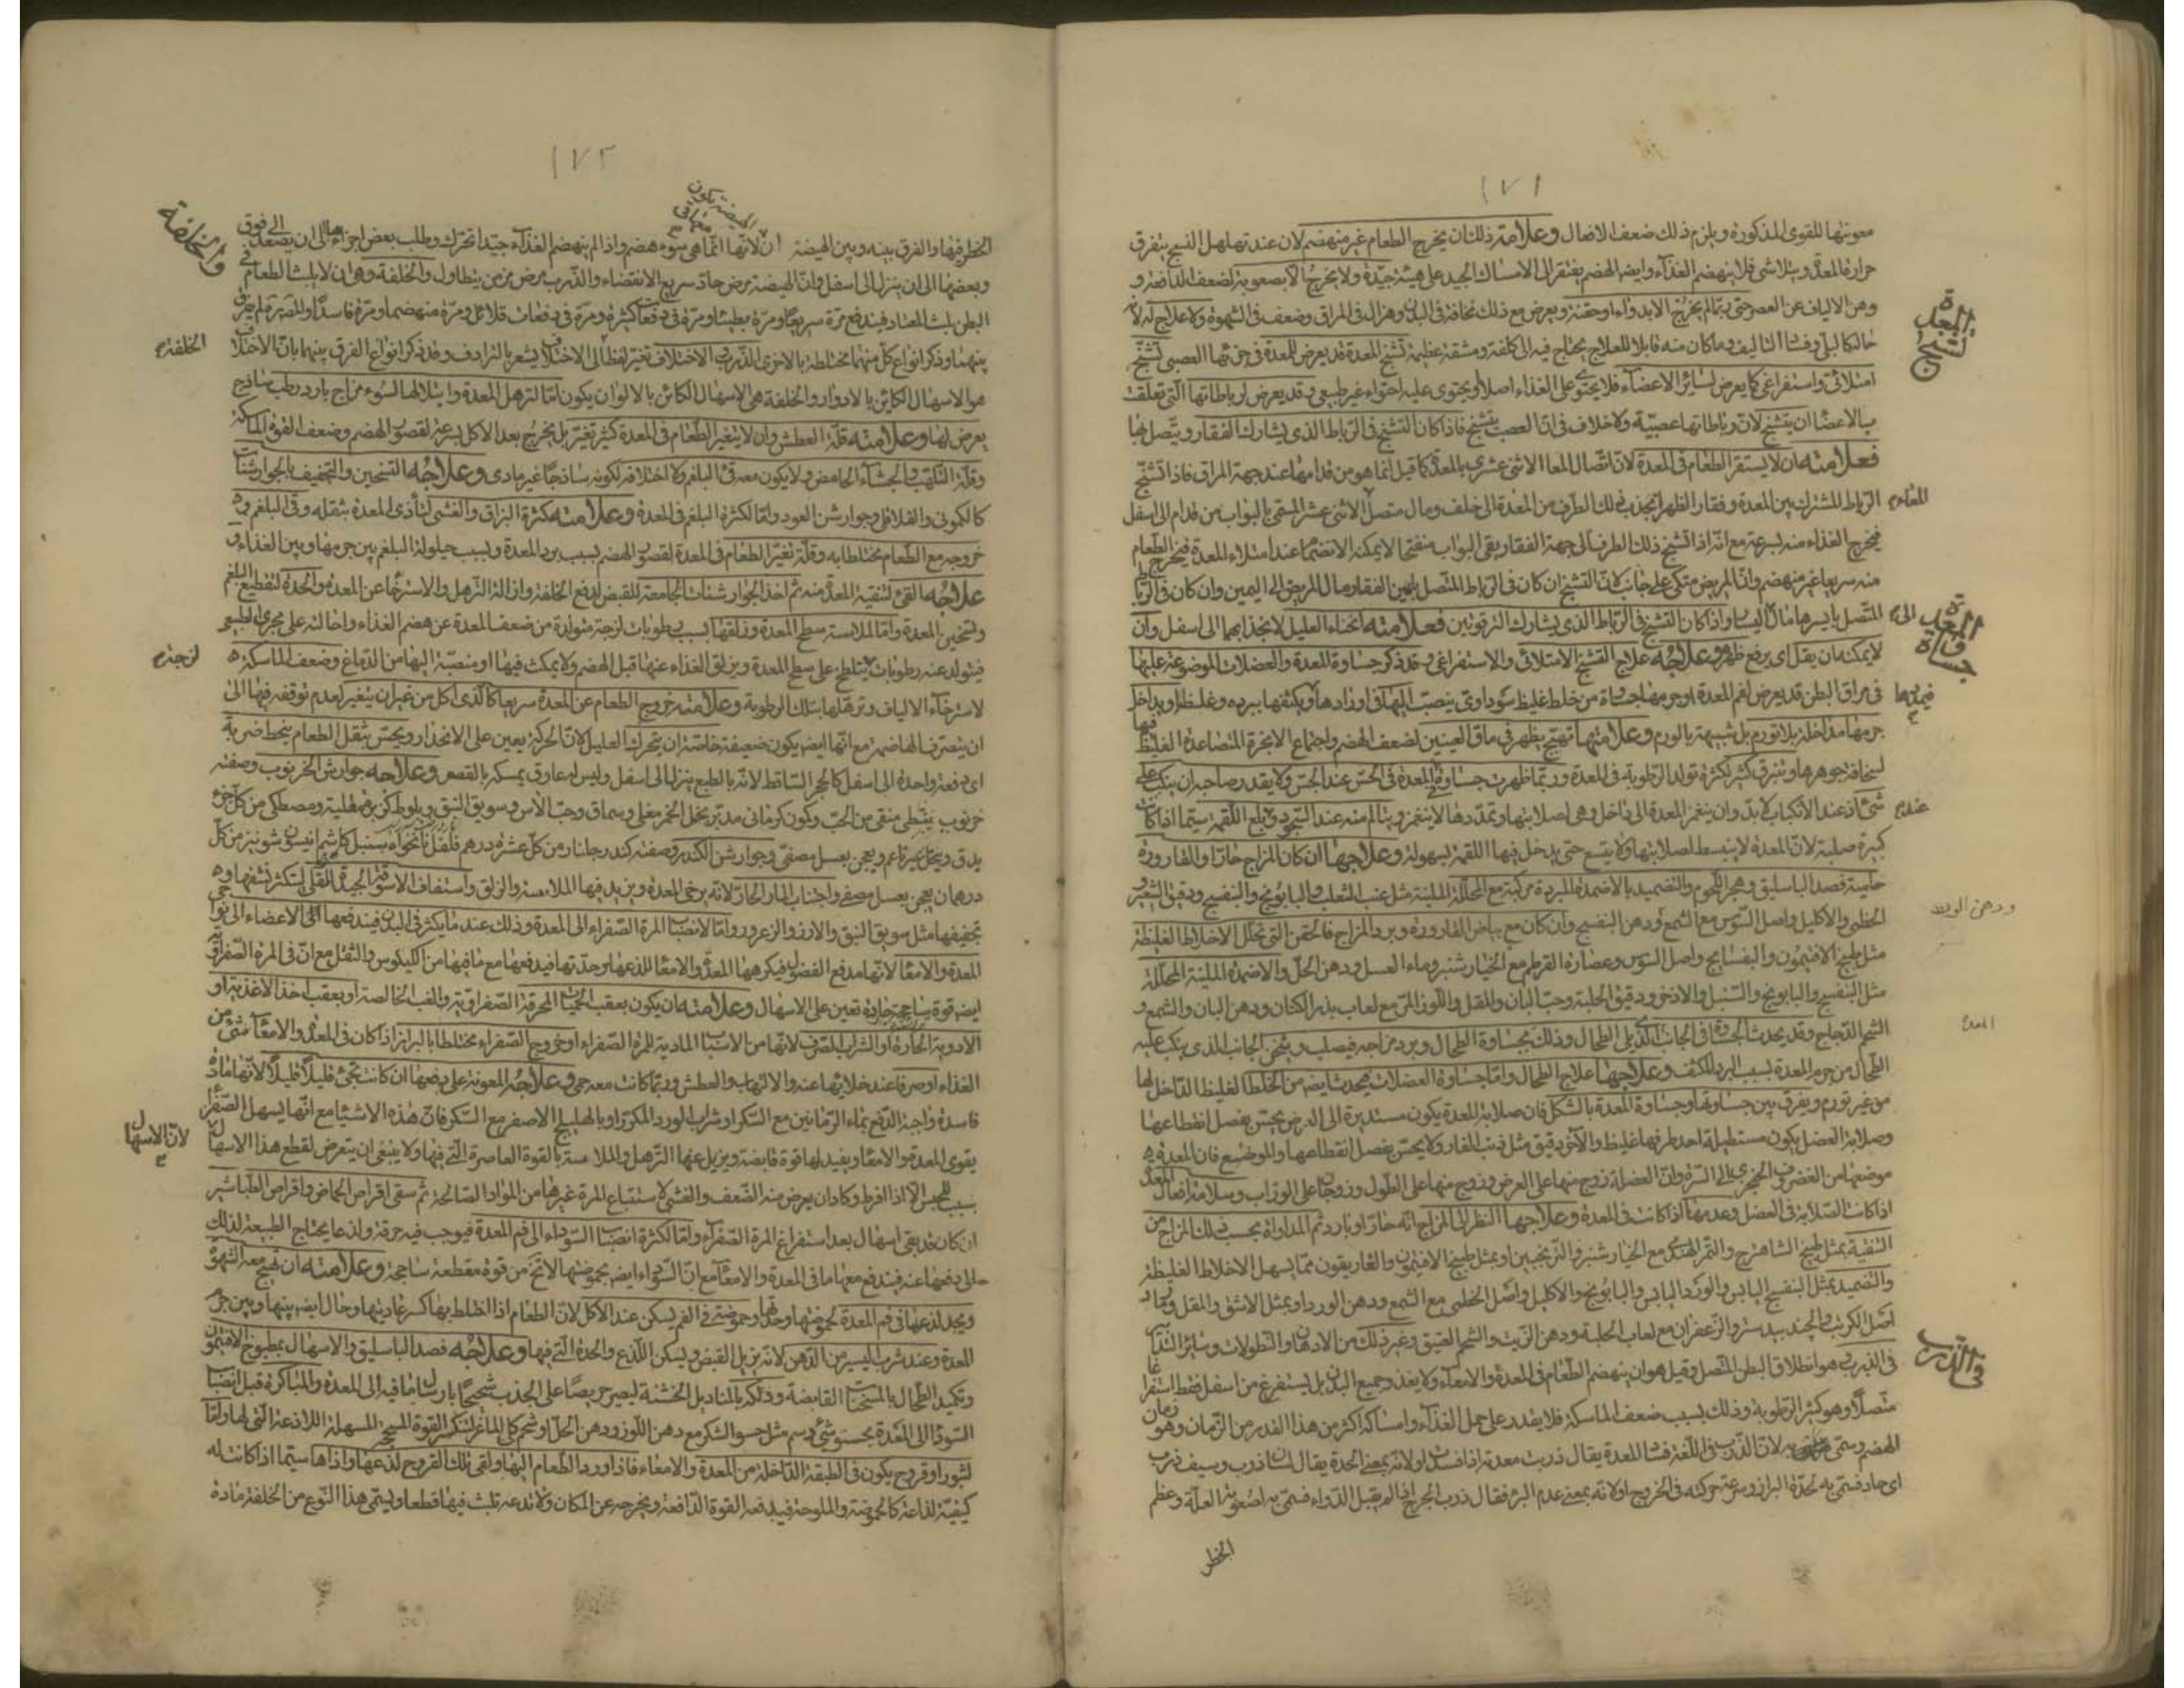 ١٧١
معونتها للقوى المذكورة ويلزم ذلك ضعف الافعال وعلامته ذلك ان يخرج الطعام غير منهضم لان عند تهلهل النسج يتفرق
حرارة المعدة ويتلاشى فلا ينهضم الغذاء وايضا الهضم يفتقر الى الامساك الجيد على هيئة جيدة ولا يخرج الا بصعوبة لضعف الدافعة و
وهن الالياف عن العصر حتى ربما لم يخرج الا بدواء او حقنة ويعرض مع ذلك نحافة في البدن وهزال في المراق وضعف في الشهوة ولا علاج له لانه
تشنج المعدة
امتلائي واستفراغي كما يعرض لسائر الاعضاء فلا يحتوي على الغذاء اصلا او يحتوي عليه احتواء غير طبيعي وقد يعرض لرباطاتها التي تعلقت
بالاعضاء ان يتشنج لان رباطاتها عصبية ولا خلاف في ان العصب يتشنج فاذا كان التشنج في الرباط الذي يشارك الفقار ويتصل بها
فعلامته ان لا يستقر الطعام في المعدة لان اتصال المعا الاثنى عشري بالمعدة كما قيل انما هو من قدامها عند جهة المراق فاذا تشنج
الرباط المشترك بين المعدة وفقار الظهر انجذب ذلك الطرف من المعدة الى خلف ومال متصل الاثنى عشر المسمى بالبواب من قدام الى اسفل
فيخرج الغذاء منه بسرعة مع انه اذا تشنج ذلك الطرف الى جهة الفقار بقي البواب منفتحا لا يمكنه الانضمام عند امتلاء المعدة فيخرج الطعام
منه سريعا غير منهضم وان المريض متكئ على جانب لان التشنج ان كان في الرباط المتصل بيمين الفقار مال المريض الى اليمين وان كان في الرباط
المتصل بايسرها مال الى اليسار واذا كان التشنج في الرباط الذي يشارك الترقوتين فعلامته انحناء العليل لانجذابهما الى اسفل وان
جساوة المعدة
لا يمكنه ان يقل اي يرفع ظهره وعلاجه علاج التشنج الامتلائي والاستفراغي وقد ذكر جساوة المعدة والعضلات الموضوعة عليها
في مراق البطن قد يعرض لفم المعدة او جرمها جساة من خلط غليظ سوداوي ينصب اليها في اورادها ويكثفها ببرده وغلظه او يداخل
جرمها مداخلة بلا تورم بل شبيهة بالورم وعلامتها تهيج يظهر في ماق العينين لضعف الهضم واجتماع الابخرة المتصاعدة الغليظة
لسخافة جوهرها وتبزق كثير لكثرة تولد الرطوبة في المعدة وربما ظهرت جساوة المعدة في الحس عند الجس ولا يقدر صاحبه ان ينكب على
شيء اذ عند الانكباب لا بد وان ينغمز المعدة الى داخل وهي لصلابتها وتمددها لا ينغمز ويتالم منه عند السجود وبلع اللقمة سيما اذا كانت
كبيرة صلبة لان المعدة لا ينبسط لصلابتها ولا يتسع حتى يدخل فيها اللقمة بسهولة وعلاجها ان كان المزاج حارا والقارورة
حامية فصد الباسليق وهجر اللحوم والتضميد بالاضمدة المبردة مركبة مع المحللة الملينة مثل عنب الثعلب والبابونج والبنفسج ودقيق الشعير
ودهن الورد
الخطمي والاكليل واصل السوس مع الشمع ودهن البنفسج وان كان مع بياض القارورة وبرد المزاج فالحقن التي تحلل الاخلاط الغليظة
مثل طبيخ الافتيمون والبسفايج واصل السوس وعصارة القرطم مع الخيار شنبر وماء العسل ودهن الخل والاضمدة الملينة المحللة
مثل البنفسج والبابونج والسنبل والاذخر ودقيق الحلبة وحب البان والمقل واللوز المر مع لعاب بذر الكتان ودهن البان والشمع و
المعدة
الطحال من جرم المعدة بسبب البرد المكثف وعلاجها علاج الطحال واما جساوة العضلات فيحدث ايضا من الخلط الغليظ الداخل لها
من غير تورم ويفرق بين جساوتها وجساوة المعدة بالشكل فان صلابة المعدة يكون مستديرة الى العرض يحس بفصل انقطاعها
وصلابة العضل يكون مستطيلة احد طرفيها غليظ والآخر دقيق مثل ذنب الفار ولا يحس بفصل انقطاعها والموضع فان المعدة
اذا كانت الصلابة في العضل وعدمها اذا كانت في المعدة وعلاجها النظر الى المزاج انه حار او بارد ثم المداواة بحسب ذلك المزاج من
التنقية بمثل طبيخ الشاهترج والتمر الهندي مع الخيار شنبر والترنجبين او بمثل طبيخ الافتيمون والغاريقون مما يسهل الاخلاط الغليظة
والتضميد بمثل البنفسج اليابس والورد اليابس والبابونج والاكليل واصل الخطمي مع الشمع ودهن الورد او بمثل الاشق والمقل ورماد
اصل الكرنب والجندبيدستر والزعفران مع لعاب الحلبة ودهن الزيت والشحم العتيق وغير ذلك من الادهان والنطولات وسائر التدابير
في الذرب
في الذرب هو انطلاق البطن المتصل وقيل هو ان ينهضم الطعام في المعدة والامعاء ولا يغذو جميع البدن بل يستفرغ من اسفل فقط استفراغا
متصلا وهو كثير الرطوبة وذلك بسبب ضعف الماسكة فلا يقدر على حمل الغذاء وامساكه اكثر من هذا القدر من الزمان وهو زمان
الهضم وسمى به لان الذرب في اللغة فساد المعدة يقال ذربت معدته اذا فسدت او لانه بمعنى الحدة يقال لسان ذرب وسيف ذرب
اي حاد فسمي به لحدة البراز وسرعة حركته في الخروج او لانه بمعنى عدم البرء فقال ذرب الجرح اذا لم يقبل الدواء فسمي به لصعوبة العلة وعظم
الخطر
١٧٢
والخلفة
الخطر فيها والفرق بينه وبين الهيضة ان لانها انما هي سوء هضم واذا لم ينهضم الغذاء جيدا تحرك وطلب بعض اجزائها الى ان يصعد الى فوق
وبعضها الى ان ينزل الى اسفل وان الهيضة مرض حاد سريع الانقضاء والذرب مرض مزمن يتطاول والخلفة وهي ان لا يلبث الطعام في
البطن لبث المعتاد فيندفع مرة سريعا ومرة بطيئا ومرة في دفعات كثيرة ومرة في دفعات قلائل ومرة منهضما ومرة فاسدا والمص لم يفرق
بينهما وذكر انواع كل منهما مختلطة بالاخرى
الخلفة
هو الاسهال الكائن بالادوار والخلفة هي الاسهال الكائن بالالوان يكون اما لترهل المعدة وابتلالها لسوء مزاج بارد رطب ساذج
يعرض لها وعلامته قلة العطش وان لا يتغير الطعام في المعدة كثير تغير بل يخرج بعد الاكل بسرعة لقصور الهضم وضعف القوة الماسكة
وقلة التلهب والجشاء الحامض ولا يكون معه قيء البلغم ولا اختلافه لكونه ساذجا غير مادي وعلاجه التسخين والتجفيف بالجوارشنات
كالكموني والفلافلي وجوارشن العود واما لكثرة البلغم في المعدة وعلامته كثرة البزاق والغثي لتأذي المعدة بثقله وقيء البلغم و
خروجه مع الطعام مختلطا به وقلة تغير الطعام في المعدة لقصور الهضم بسبب برد المعدة وبسبب حيلولة البلغم بين جرمها وبين الغذاء و
علاجه القيء لتنقية المعدة منه ثم اخذ الجوارشنات الجامعة للقبض لدفع الخلفة وازالة الترهل والاسترخاء عن المعدة والحدة لتقطيع البلغم
وتسخين المعدة واما لملاسة سطح المعدة وزلقها بسبب رطوبات لزجة متولدة من ضعف المعدة عن هضم الغذاء واحالته على مجرى الطبيعي
لزجة
فيتولد عنه رطوبات يتلطخ على سطح المعدة ويزلق الغذاء عنها قبل الهضم ولا يمكث فيها او منصبة اليها من الدماغ وضعف الماسكة
لاسترخاء الالياف وترهلها بتلك الرطوبة وعلامته خروج الطعام عن المعدة سريعا كالذي اكل من غير ان يتغير لعدم توقفه فيها الى
ان يتصرف الهاضمة مع انها ايضا يكون ضعيفة خاصة ان يتحرك العليل لان الحركة يعين على الانحدار ويحس بثقل الطعام ينحط ضربة
اي دفعة واحدة الى اسفل كالحجر الساقط لانه بالطبع ينزل الى اسفل وليس له عاوق يمسكه بالقصر وعلاجه جوارش الخرنوب وصفته
خرنوب نبطي منقى من الحب وكمون كرماني مدبر بخل الخمر مغلي وسماق وحب الآس وسويق النبق وبلوط وكزبرة مقلية ومصطكي من كل جزء
درهمان يعجن بعسل مصفى واجتناب الماء الحار لانه يرخي المعدة ويزيد فيها الملاسة والزلق واستفاف الاسوقة الجيدة القلي لتكثر نشفها و
تجفيفها مثل سويق النبق والارز والزعرور واما لانصباب المرة الصفراء الى المعدة وذلك عند ما يكثر في البدن فيندفعها الى الاعضاء الى نواحي
المعدة والامعاء لانها مدفع الفضول فيكرهها المعدة والامعاء للذعها وحدتها فيدفعها مع ما فيها من الكيلوس والثفل مع ان في المرة الصفراوية
ايضا قوة ساحجة جاردة تعين على الاسهال وعلامته ان يكون بعقب الحميات المحرقة الصفراوية والغب الخالصة او بعقب اخذ الاغذية او
الادوية الحارة او الشراب الصرف لانها من الاسباب المادية للمرة الصفراء او خروج الصفراء مختلطا بالبراز اذا كان في المعدة والامعاء شيء من
الغذاء او صرفا عند خلائها عنه والالتهاب والعطش وربما كانت معه حمى وعلاجه المعونة على دفعها ان كانت تجيء قليلا قليلا لانها مادة
فاسدة واجبة الدفع بماء الرمانين مع السكر او شراب الورد المكرر او بالهليلج الاصفر مع السكر فان هذه الاشياء مع انها يسهل الصفراء
لان الاسهال
يقوي المعدة والامعاء ويفيد لها قوة قابضة ويزيل عنها الترهل والملاسة بالقوة العاصرة التي فيها ولا ينبغي ان يتعرض لقطع هذا الاسهال
الا اذا افرط وكاد ان يعرض منه الضعف والغشي لاستتباع المرة غيرها من المواد الصالحة ثم سقي اقراص الحماض واقراص الطباشير
ان كان قد بقي اسهال بعد استفراغ المرة الصفراء واما لكثرة انصباب السوداء الى فم المعدة فيوجب فيه حرقة ولذعا يحتاج الطبيعة لذلك
الى دفعها عنه فيندفع معها ما في المعدة والامعاء مع ان السوداء ايضا بحموضتها لا تخ من قوة مقطعة ساحجة وعلامته ان تهيج معه الشهوة
ويجد لذعها في فم المعدة لحموضتها وحدتها وحموضة في الفم يسكن عند الاكل لان الطعام اذا اختلط بها كسر غاديتها وحال ايضا بينها وبين جرم
المعدة وعند شرب اليسير من الدهن لانه يزيل القبض ويسكن اللذع والحدة التي فيها وعلاجه فصد الباسليق والاسهال بمطبوخ الافتيمون
وتكميد الطحال بالمسخنات القابضة ودلكه بالمناديل الخشنة ليصير حريصا على الجذب شحيحا بارسال ما فيه الى المعدة والمباكرة قبل انصباب
السوداء الى المعدة بحسو شيء دسم مثل حسو السكر مع دهن اللوز ودهن الخل
لبثور او قروح يكون في الطبقة الداخلة من المعدة والامعاء فاذا ورد الطعام اليها ولقي تلك القروح لذعها واذاها سيما اذا كانت له
كيفية لذاعة كالحموضة والملوحة فيدفعه القوة الدافعة ويخرجه عن المكان ولا تدعه تلبث فيها قطعا ويسمى هذا النوع من الخلفة مادة